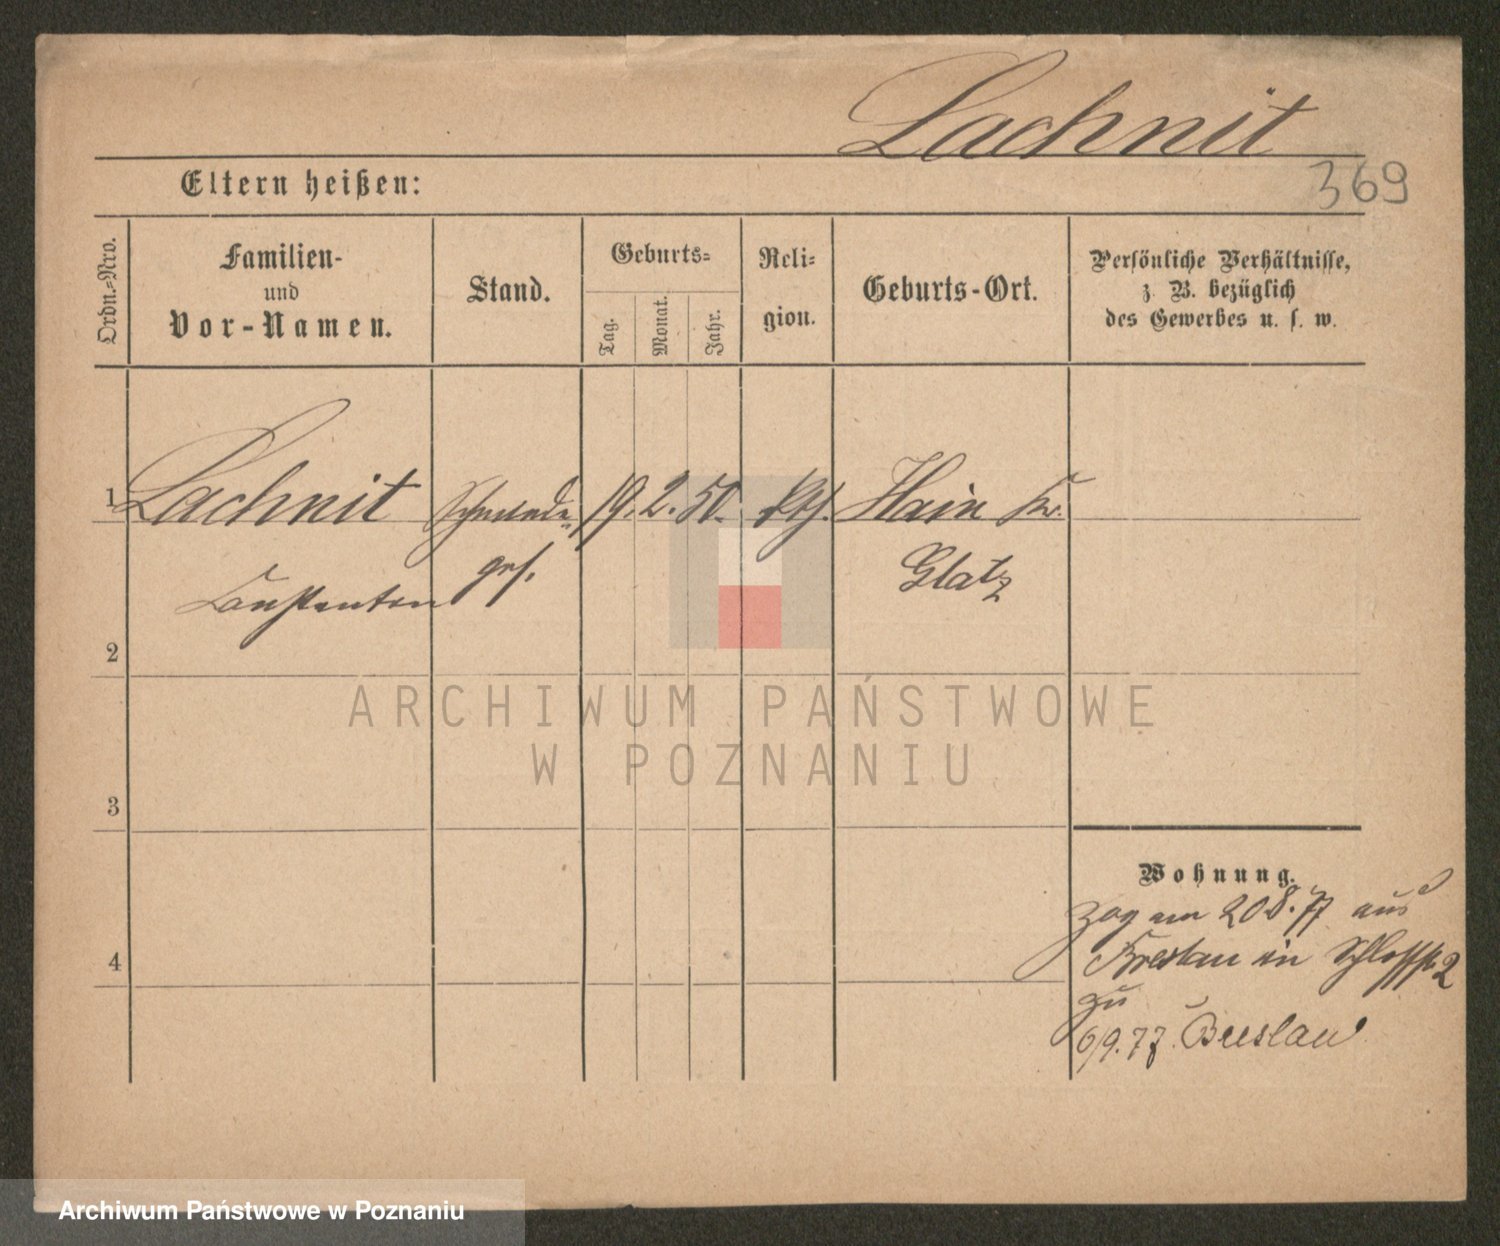 Lachnit
369
Eltern heißen:
Ordn.-Nro.
Familien-
und
Vor-Namen.
Stand.
Geburts-
Tag.
Monat.
Jahr.
Reli-
gion.
Geburts-Ort.
Persönliche Verhältnisse,
z. B. bezüglich
des Gewerbes u. s. w.
1 Lachnit 19. 2. 50. kth. Hain Kr.
Constantin ges. Glatz
2
3
4
Wohnung.
zog am 20 8. 77 aus
Breslau in Schloßstr 2
zu
6/9. 77. Breslau
ARCHIWUM PAŃSTWOWE
W POZNANIU
Archiwum Państwowe w Poznaniu